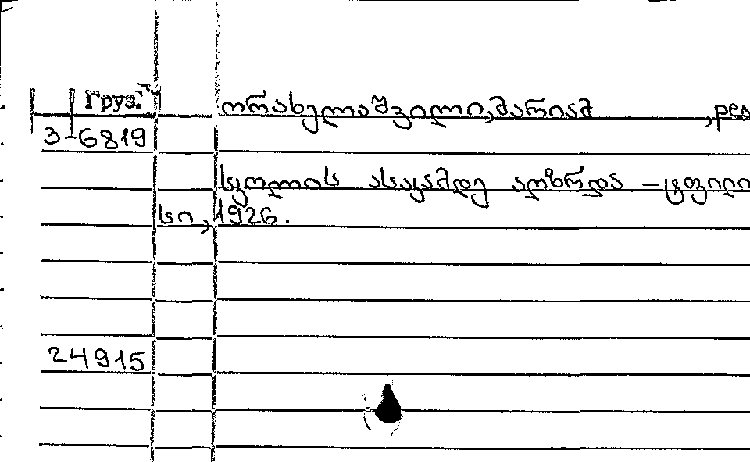 Груз.
ორახელაშვილი, მარიამ , რედ
3-6819
სკოლის ასაკამდე აღზრდა – ტფილი
სი, 1926.
24915